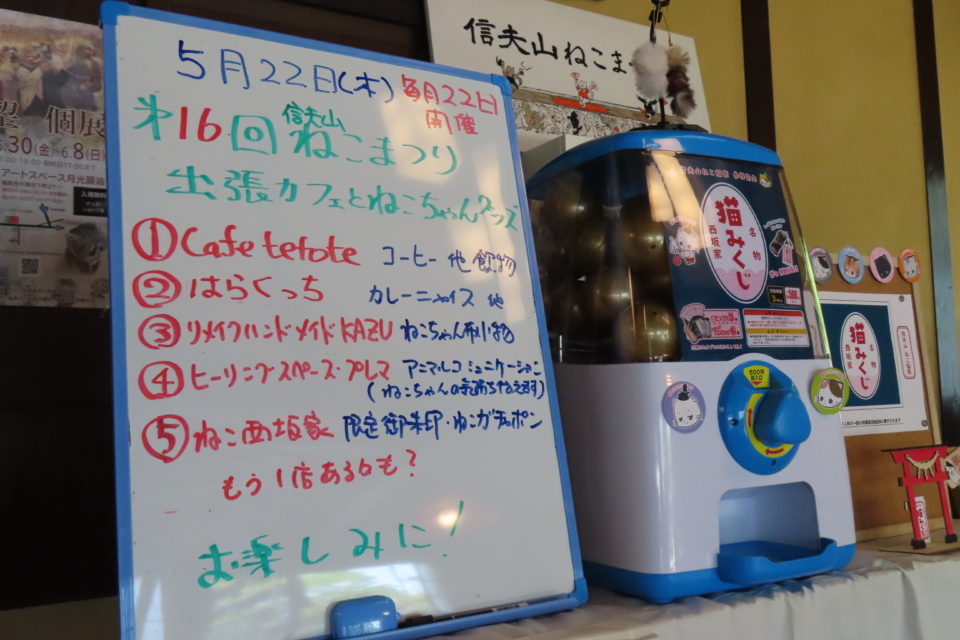 5月22日(木)
毎月22日
開催
オ16回 信夫山
ねこまつり
出張カフェとねこちゃんグッズ
①Cafe tefote コーヒー他飲物
②はらくっち カレーニャイス 他
③リメイクハンドメイドKAZU ねこちゃん布小物
④ヒーリングスペース・プレマ アニマルコミュニケーション
(ねこちゃんの気持ち伝えます)
⑤ねこ西坂家 限定御朱印・ねこガチャポン
もう1店あるかも?
お楽しみに!
信夫山ねこま
個展
5.30(金)
6.8(日)
アートスペース月光醤油
名物
猫みくじ
西坂家
500円
名物
猫みくじ
西坂家